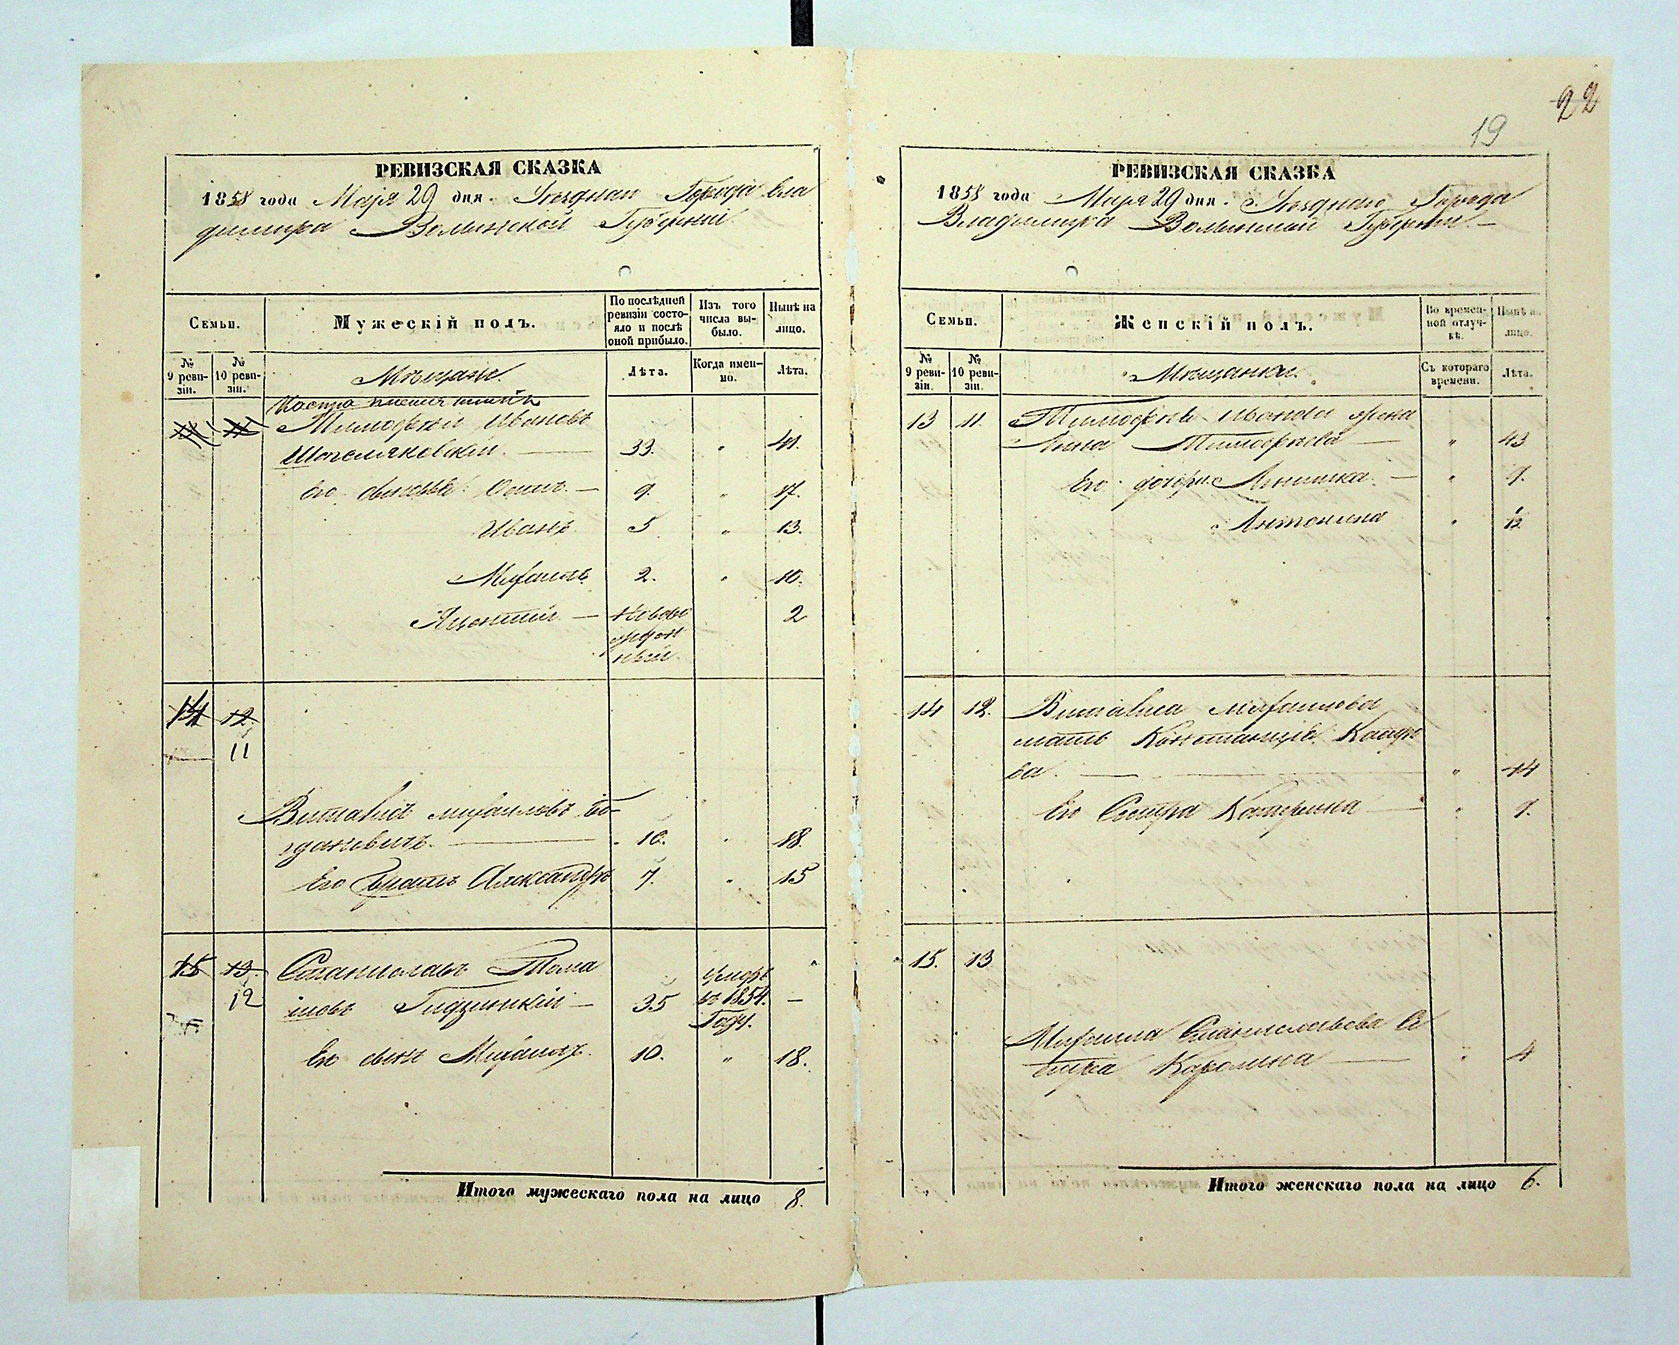 22
19
РЕВИЗСКАЯ СКАЗКА
1858 года Марта 29 дня. Уѣзднаго Города Вла
димира Волынской Губерніи
Семьи.
Мужескій полъ.
По послѣдней ревизіи состо-
яло и послѣ
оной прибыло.
Изъ того
числа вы-
было.
Нынѣ на
лицо.
№
9 реви-
зіи.
№
10 реви-
зіи.
Мѣщане.
Лѣта.
Когда имен-
но.
Лѣта.
Тимофей Ивановъ
33. " 41.
Его сыновья: Осипъ — 9. " 17.
Иванъ 5 " 13.
Михаилъ 2. " 10.
— Новоро
жден
ный 2
14 12.
11
Виталисъ Михайловъ Бо
гдановичъ. — 10. " 18.
Его братъ Александръ 7. " 15
15 13.
12
Станиславъ Тома
шовъ — 35 умеръ
въ 1854.
Году. —
Его сынъ Михаилъ. 10. " 18.
Итого мужескаго пола на лицо 8.
РЕВИЗСКАЯ СКАЗКА
1858 года Марта 29 дня. Уѣзднаго Города
Владимира Волынской Губерніи —
Семьи.
Женскій полъ.
Во времен-
ной отлуч-
кѣ.
Нынѣ на
лицо.
№
9 реви-
зіи.
№
10 реви-
зіи.
Мѣщанки.
Съ котораго
времени.
Лѣта.
13 11. Тимофея Иванова жена
Тимофеева — " 43
Его дочери: — " 9.
Антонина " 1/12
14 12. Виталиса Михайлова
мать Констанція
ва. — " 44
Его Сестра Катерина — " 9.
15. 13
Михаила Станиславова Се
стра Каролина — " 4
Итого женскаго пола на лицо 6.